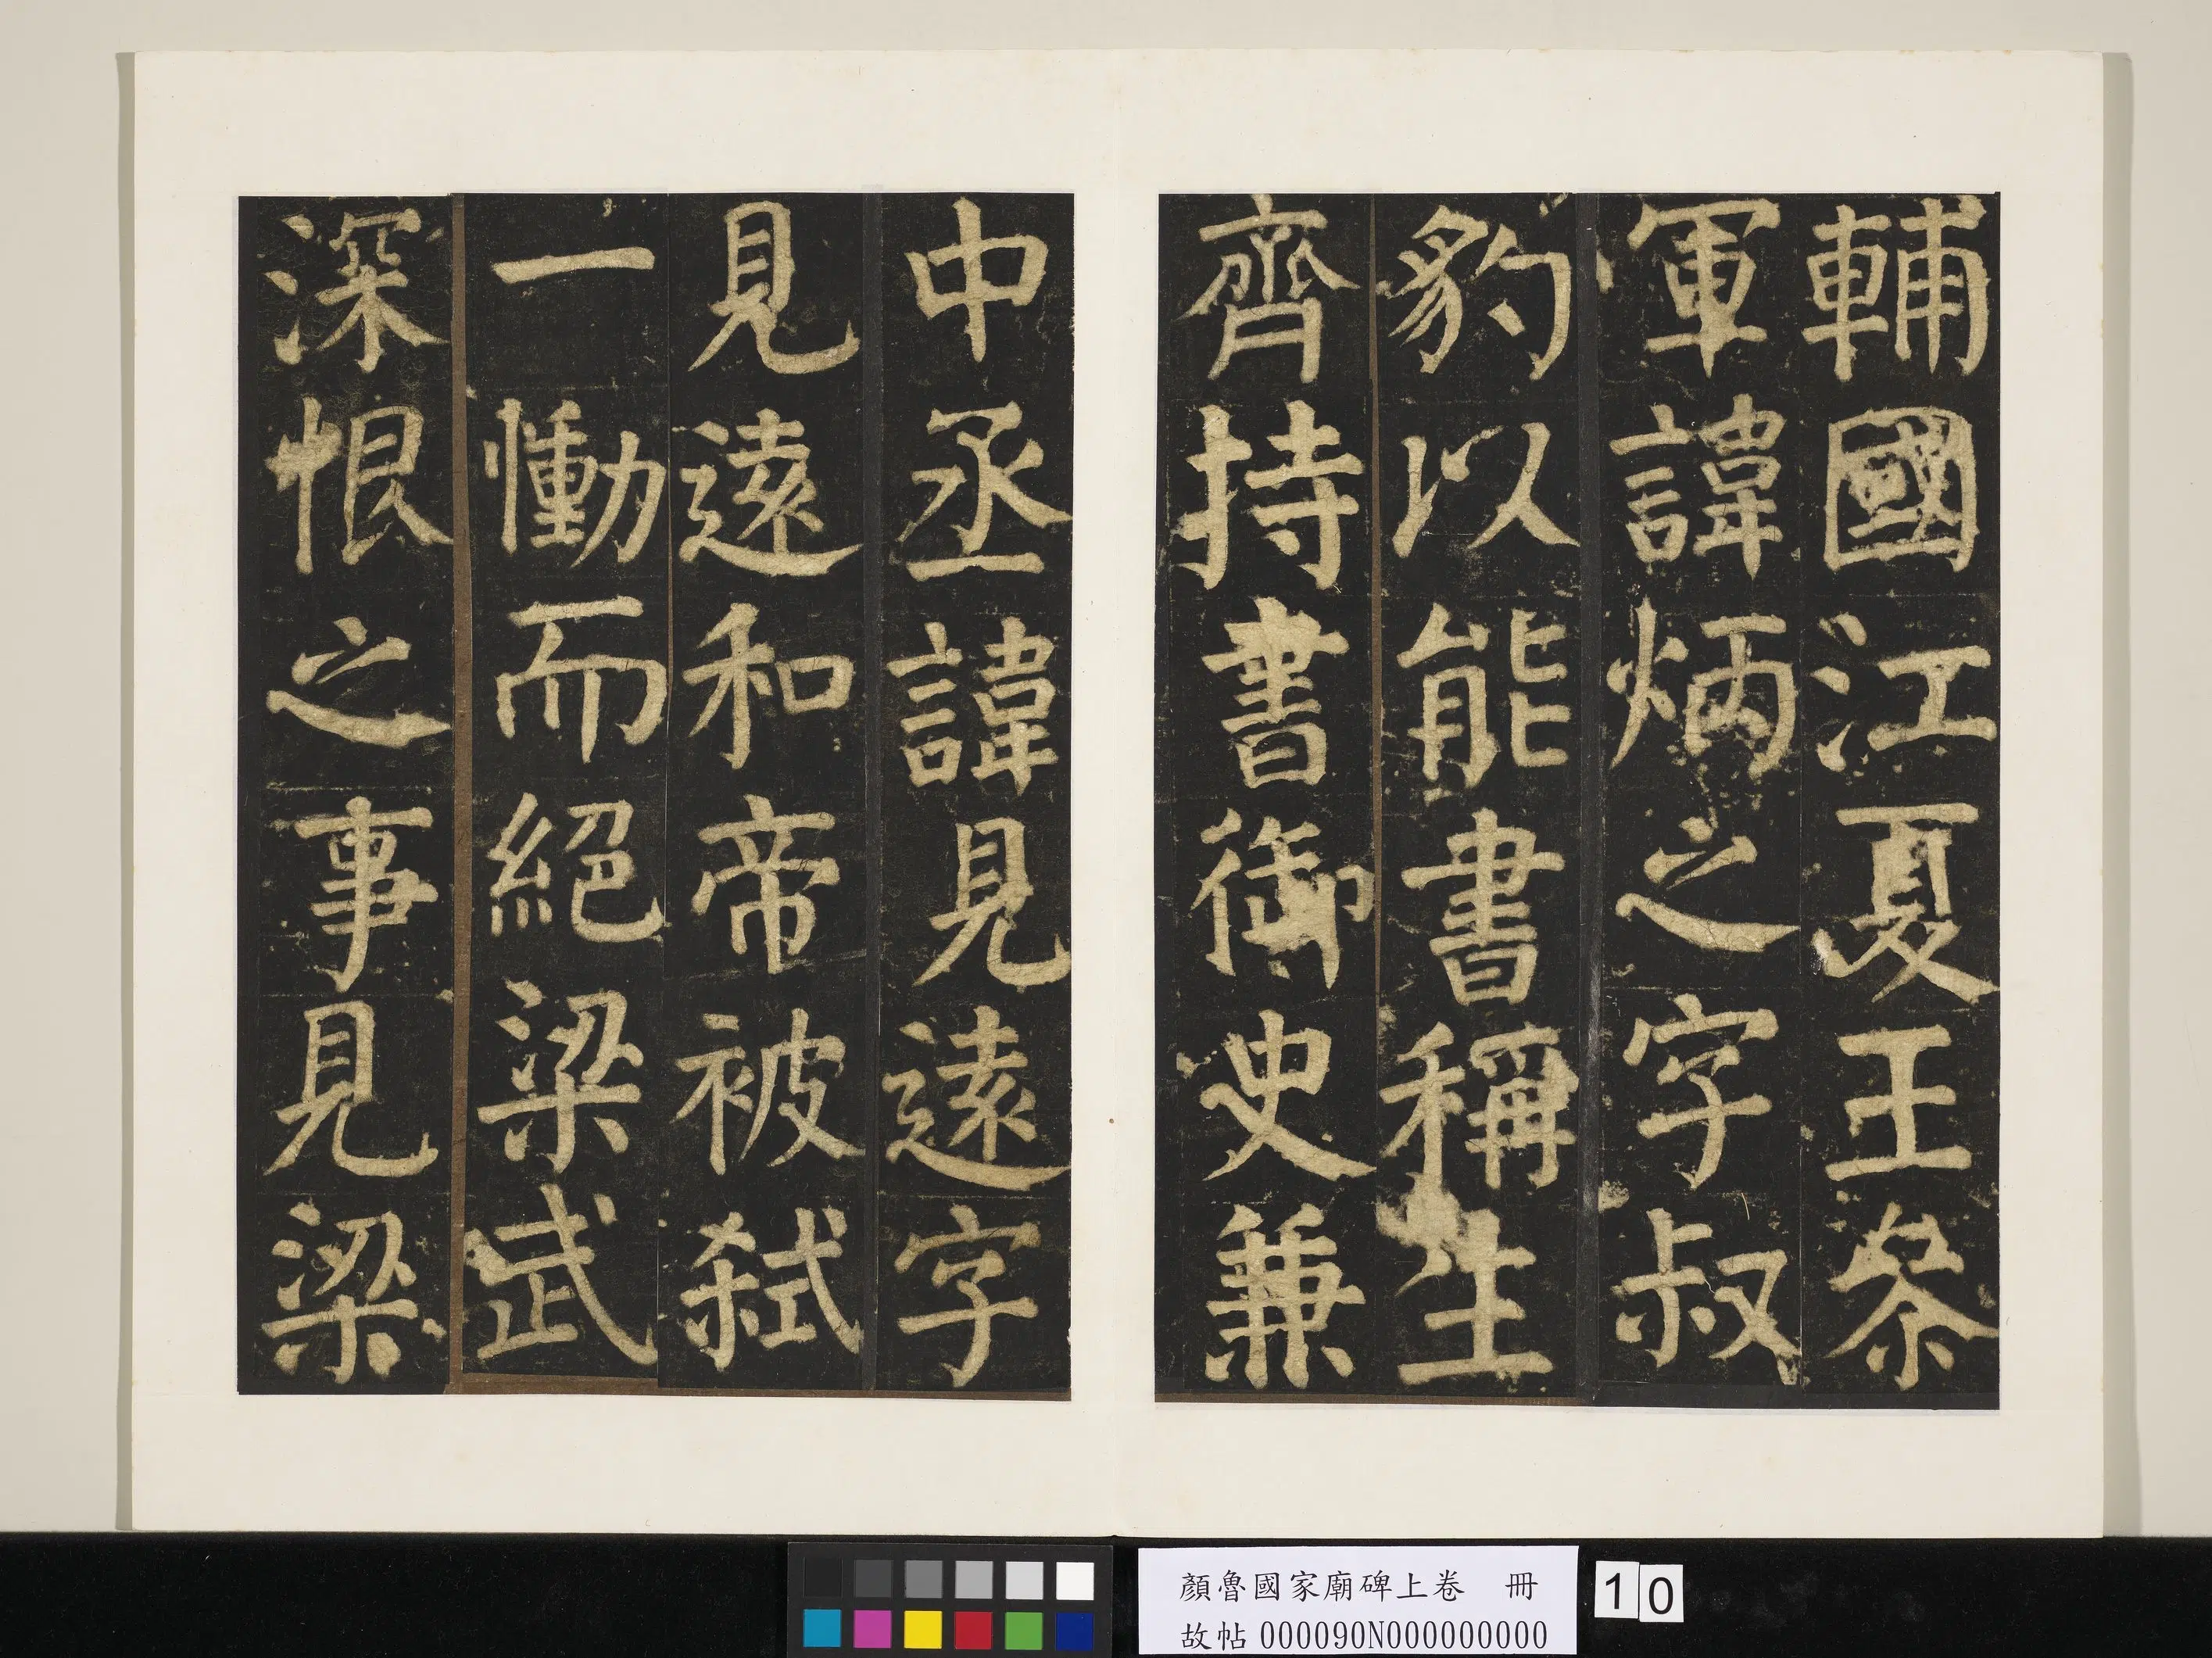 輔國江夏王叅
軍諱炳之字叔
豹以能書稱生
齊持書御史兼
中丞諱見遠字
見遠和帝被弒
一慟而絕梁武
深恨之事見梁
顏魯國家廟碑上卷 冊
故帖 000090N000000000
10